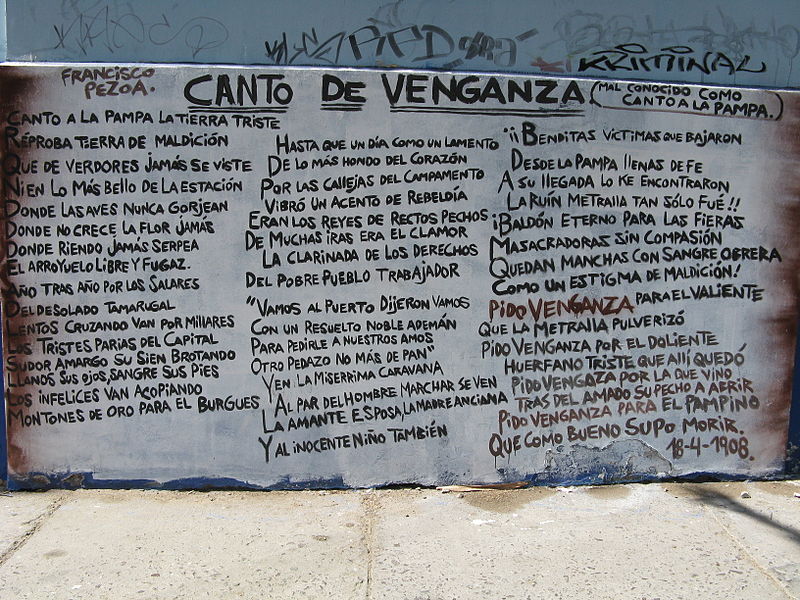 KRIMINAL
FRANCISCO
PEZOA.
CANTO DE VENGANZA
(MAL CONOCIDO COMO
CANTO A LA PAMPA.)
CANTO A LA PAMPA LA TIERRA TRISTE
RÉPROBA TIERRA DE MALDICIÓN
QUE DE VERDORES JAMÁS SE VISTE
NI EN LO MÁS BELLO DE LA ESTACIÓN
DONDE LAS AVES NUNCA GORJEAN
DONDE NO CRECE LA FLOR JAMÁS
DONDE RIENDO JAMÁS SERPEA
EL ARROYUELO LIBRE Y FUGAZ.
AÑO TRAS AÑO POR LOS SALARES
DEL DESOLADO TAMARUGAL
LENTOS CRUZANDO VAN POR MILLARES
LOS TRISTES PARIAS DEL CAPITAL
SUDOR AMARGO SU SIEN BROTANDO
LLANOS SUS OJOS, SANGRE SUS PIES
LOS INFELICES VAN ACOPIANDO
MONTONES DE ORO PARA EL BURGUES
HASTA QUE UN DÍA COMO UN LAMENTO
DE LO MÁS HONDO DEL CORAZÓN
POR LAS CALLEJAS DEL CAMPAMENTO
VIBRÓ UN ACENTO DE REBELDÍA
ERAN LOS REYES DE RECTOS PECHOS
DE MUCHAS IRAS ERA EL CLAMOR
LA CLARINADA DE LOS DERECHOS
DEL POBRE PUEBLO TRABAJADOR
"VAMOS AL PUERTO DIJERON VAMOS
CON UN RESUELTO NOBLE ADEMÁN
PARA PEDIRLE A NUESTROS AMOS
OTRO PEDAZO NO MÁS DE PAN"
Y EN LA MISERRIMA CARAVANA
AL PAR DEL HOMBRE MARCHAR SE VEN
LA AMANTE ESPOSA, LA MADRE ANCIANA
Y AL INOCENTE NIÑO TAMBIÉN
¡¡BENDITAS VICTIMAS QUE BAJARON
DESDE LA PAMPA LLENAS DE FE
A SU LLEGADA LO KE ENCONTRARON
LA RUÍN METRALLA TAN SÓLO FUÉ!!
¡BALDÓN ETERNO PARA LAS FIERAS
MASACRADORAS SIN COMPASIÓN
QUEDAN MANCHAS CON SANGRE OBRERA
COMO UN ESTIGMA DE MALDICIÓN!
PIDO VENGANZA PARA EL VALIENTE
QUE LA METRALLA PULVERIZÓ
PIDO VENGANZA POR EL DOLIENTE
HUERFANO TRISTE QUE ALLÍ QUEDÓ
PIDO VENGAZA POR LA QUE VINO
TRAS DEL AMADO SU PECHO A ABRIR
PIDO VENGANZA PARA EL PAMPINO
QUE COMO BUENO SUPO MORIR.
18-4-1908.